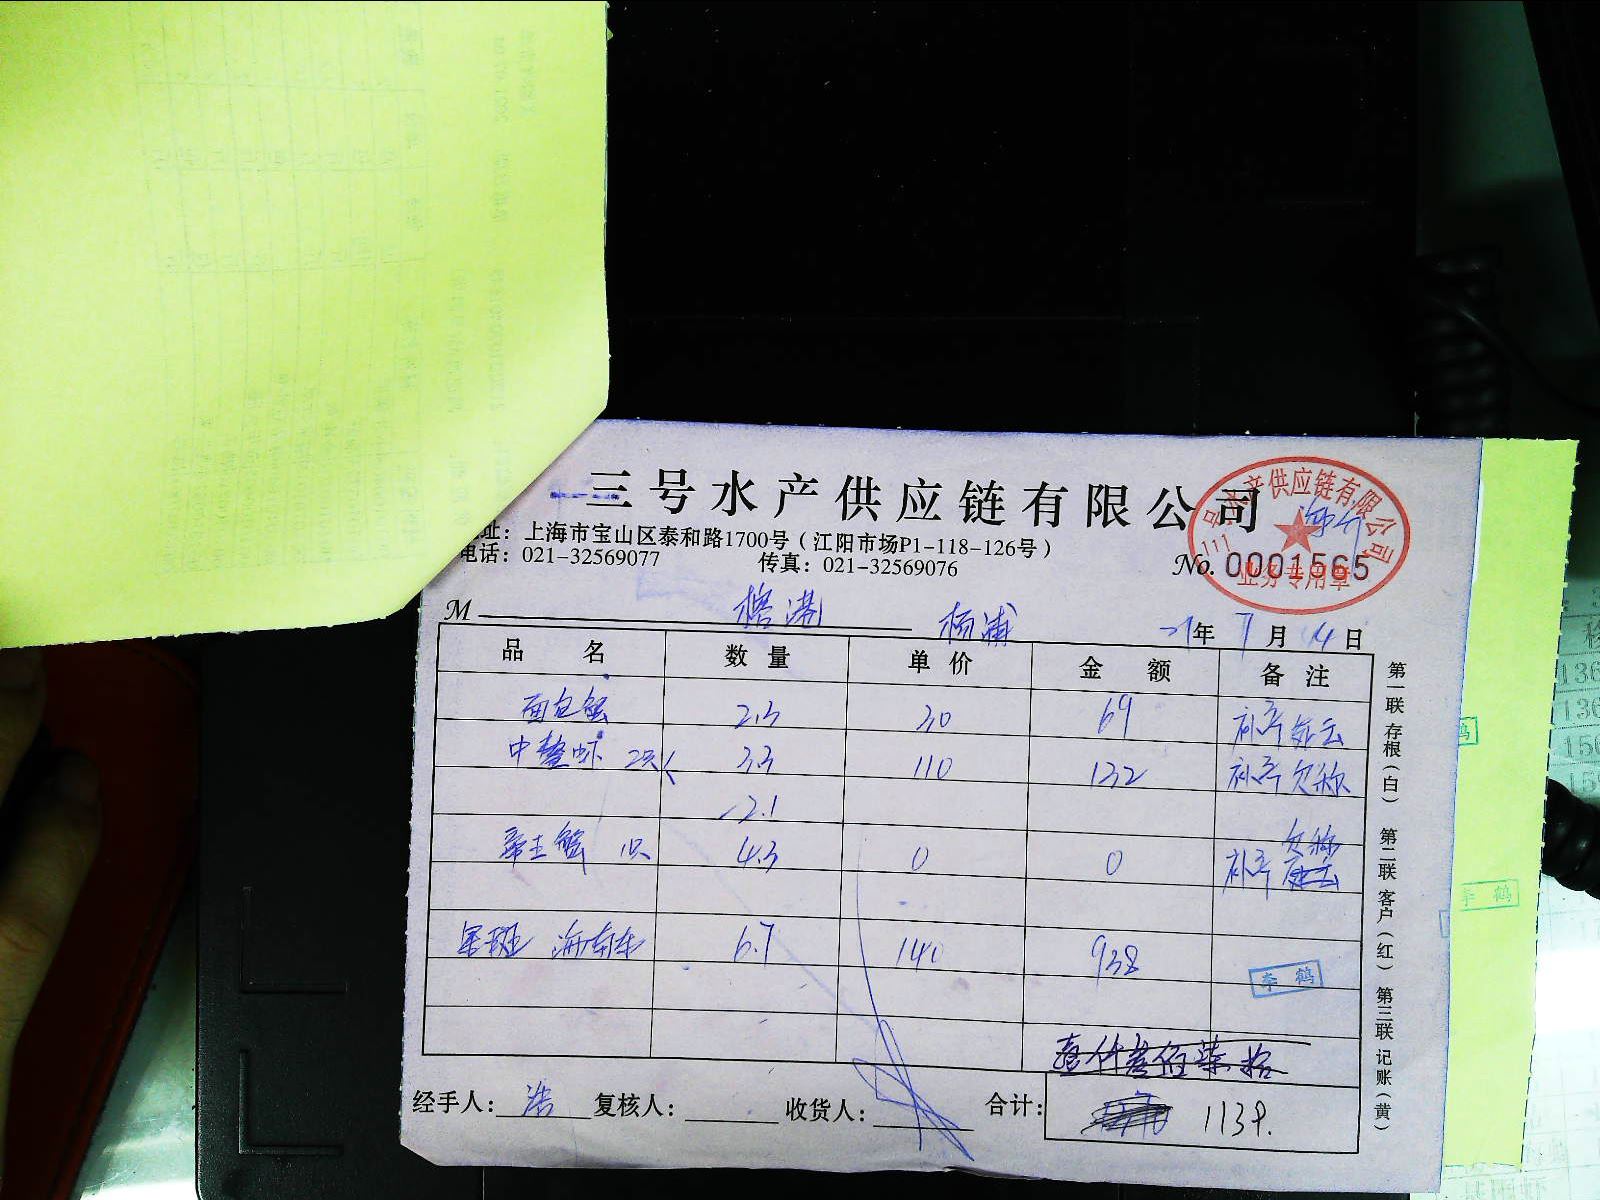 三号水产供应链有限公司
址：上海市宝山区泰和路1700号（江阳市场P1-118-126号）
电话：021-32569077 传真：021-32569076
No. 0001565
号水产供应链有限公司
业务专用章
M 榕港 杨浦 21年 7月 14日
品 名 数 量 单 价 金 额 备 注
面包蟹 2.3 30 69 补产 死亡
中螯虾 2只 3.3 110 132 补产 欠称
-2.1
帝王蟹 1只 4.3 0 0 补产 欠称
星斑 海南车 6.7 140 938
李 鹤
壹仟叁佰柒拾
经手人： 浩 复核人： 收货人： 合计： 1139.
第一联 存根（白） 第二联 客户（红） 第三联 记账（黄）
李 鹤